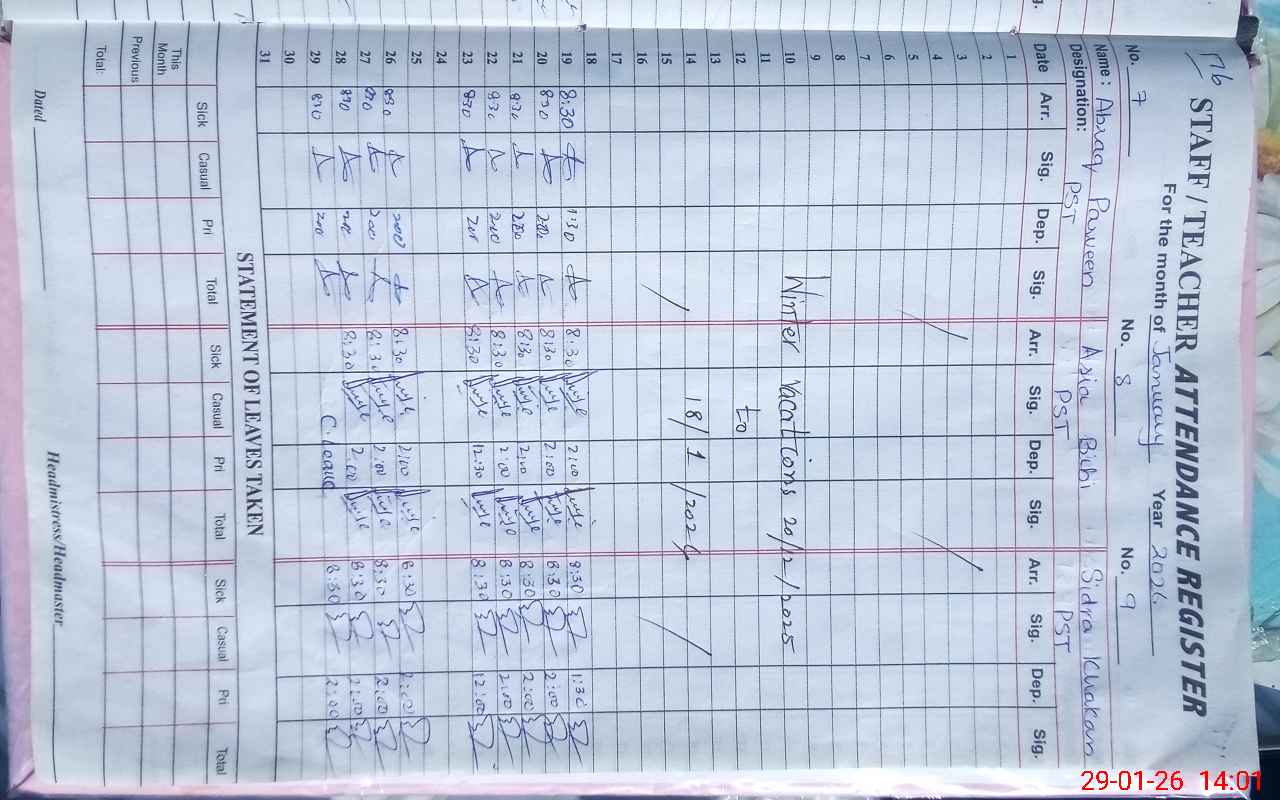 STAFF / TEACHER ATTENDANCE REGISTER
For the month of January Year 2026
No. 7 No. 8 No. 9
Name: Abraq Parveen Asia Bibi Sidra Khakan
Designation: PST PST PST
Date Arr. Sig. Dep. Sig. Arr. Sig. Dep. Sig. Arr. Sig. Dep. Sig.
1
2
3
4
5
6
7
8
9
10 Winter Vacations 20/12/2025
11
12 to
13
14 18/1/2026
15
16
17
18
19 8:30 1:30 8:30 2:00 8:30 1:30
20 830 200 8:30 2:00 8:30 2:00
21 830 200 8:30 2:00 8:30 2:00
22 830 200 8:30 2:00 8:30 2:00
23 830 8:30 12:30 8:30 12:00
24
25
26 830 200 8:30 2:00 8:30 2:00
27 830 200 8:30 2:00 8:30 2:00
28 830 200 8:30 2:00 8:30 2:00
29 830 200 C. Leave 8:30 2:00
30
31
STATEMENT OF LEAVES TAKEN
Sick Casual Pri Total Sick Casual Pri Total Sick Casual Pri Total
This Month
Previous
Total:
Dated Headmistress/Headmaster
29-01-26 14:01